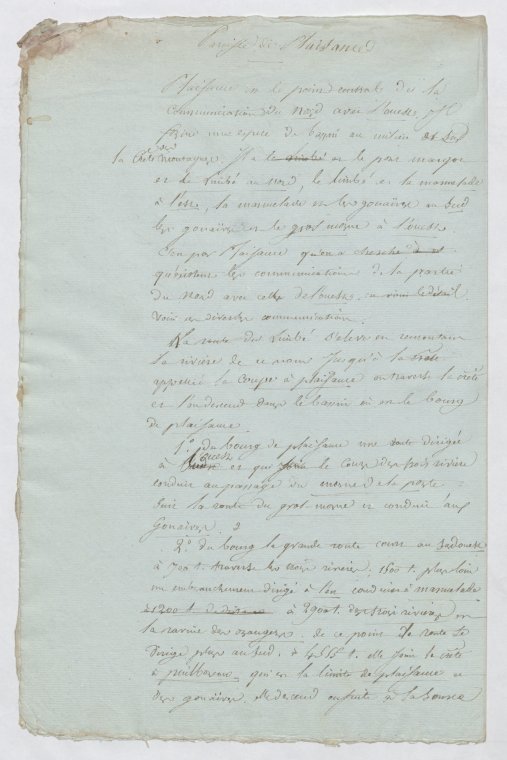 Paroisse de Plaisance
Plaisance est le point central de la
Communication du Nord avec l'ouest, Il
forme une espece de bassin au milieu des
la Crête des montagnes. Il a le limbé et le port margot
et le limbé au nord, le limbé et la marmelade
à l'est, la marmelade et les gonaïves au Sud
les gonaïves et le gros morne à l'ouest.
C'en par Plaisance qu'on a cherché
qu'existent les communications de la partie
du Nord avec celle de l'ouest, en voici le détail
Voici ces diverses communications.
La route du Limbé S'eleve en remontant
la rivière de ce nom Jusqu'à la crête
appellée la coupe à plaisance on traverse la crête
et l'on descend dans le bassin où est le bourg
de plaisance.
1.º du bourg de plaisance une route dirigée
à l'ouest et qui suit le cours des trois rivière
conduit au passage du morne de la porte
Suit la route du gros morne et conduit aux
Gonaïves.
2.º du bourg la grande route court au Sudouest
à 700 t. traverse les trois rivières, 1500 t. plus loin
un embranchement dirigé à l'est conduit à marmelade
à 1200 t. de distance à 2900 t. des trois rivières est
la ravine des orangers. de ce point la route Se
dirige plus au Sud. à 4515 t. elle joint la crête
à puilboreau, qui est la limite de plaisance et
des gonaïves, elle descend ensuite à la Source